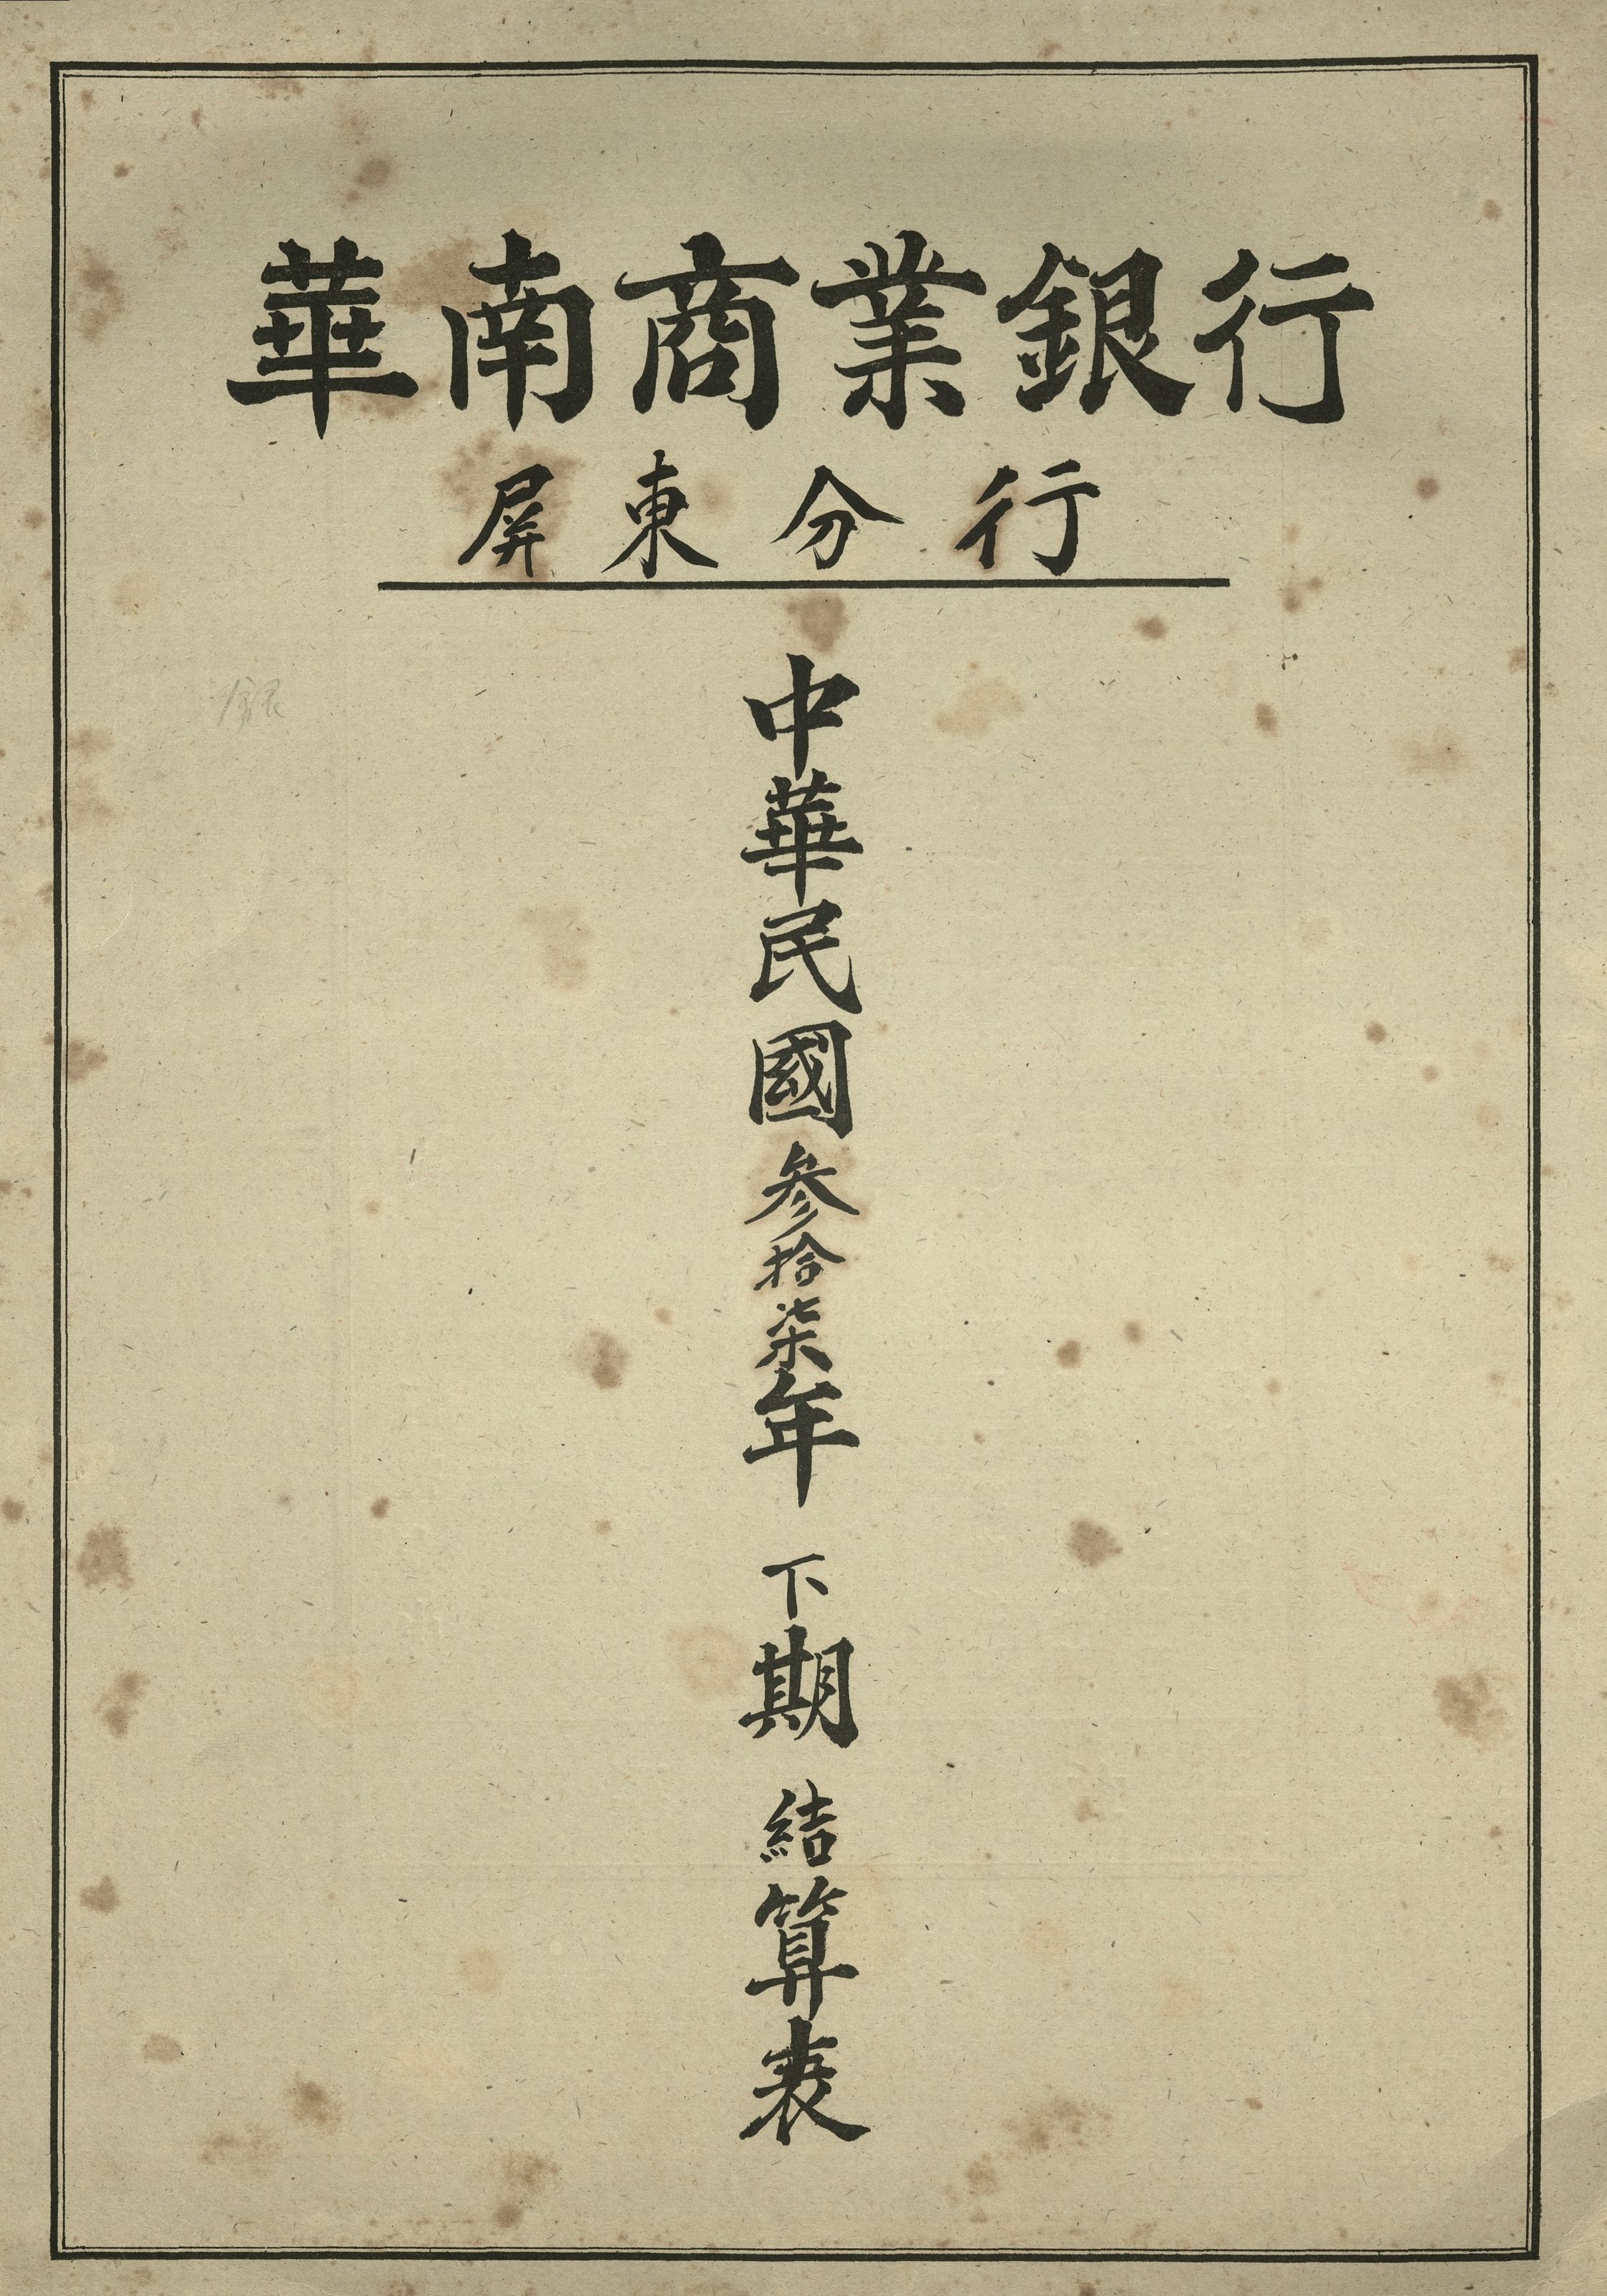 華南商業銀行
屏東分行
中華民國參拾柒年下期結算表